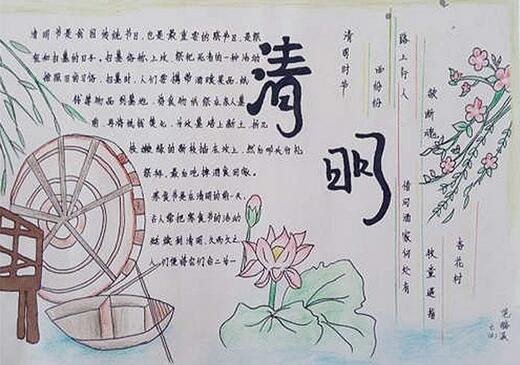 清明节是我国传统节日，也是最重要的祭祀节日，是祭
祖和扫墓的日子。扫墓俗称上坟，祭祀死者的一种活动
按照旧的习俗，扫墓时，人们要携带酒食果品、纸
钱等物品到墓地，将食物供祭在亲人墓
前，再将纸钱焚化，为坟墓培上新土，折几
枝嫩绿的新枝插在坟上，然后叩头行礼
祭拜，最后吃掉酒食回家。
寒食节是在清明的前一天，
古人常把寒食节的活动
延续到清明，久而久之
人们便将它们合二为一
清明
清明时节
雨纷纷
路上行人
欲断魂
借问酒家何处有
牧童遥指
杏花村